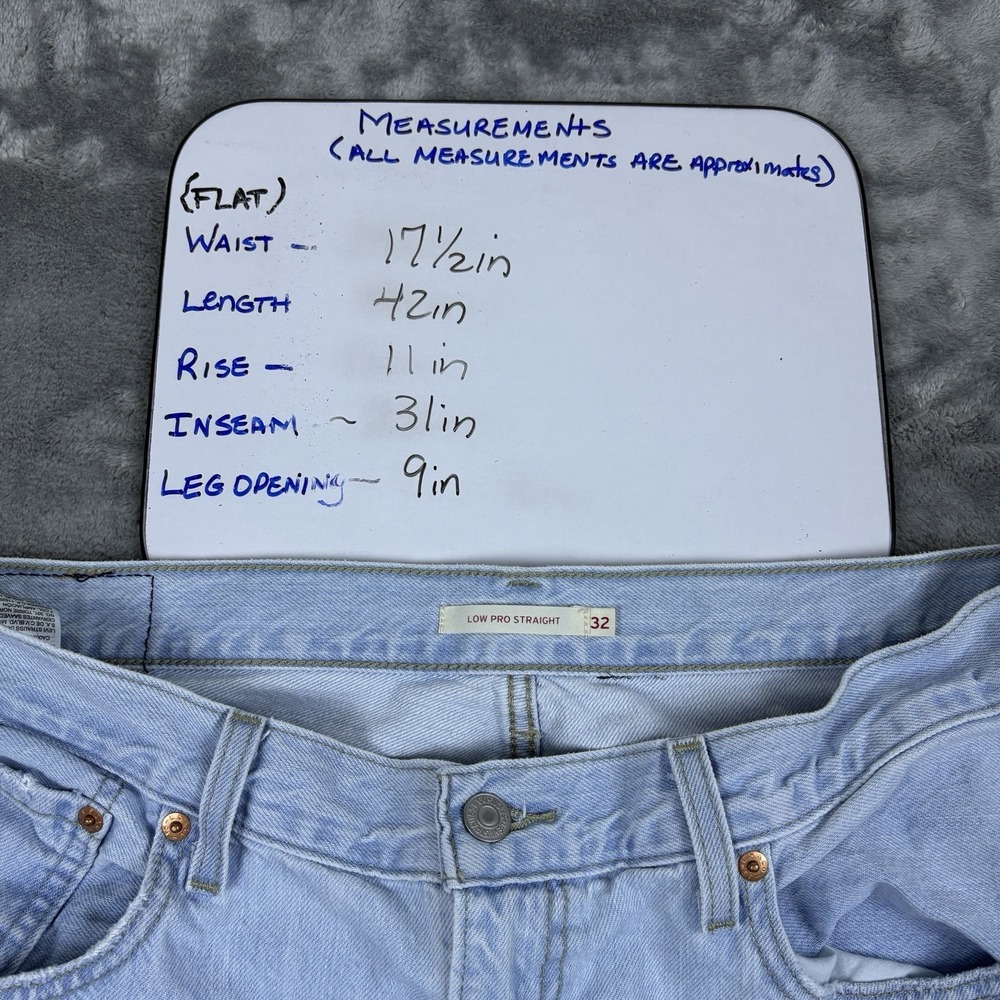 MEASUREMENTS
(ALL MEASUREMENTS ARE APPROXIMATES)
(FLAT)
WAIST - 17 1/2 in
LENGTH 42in
RISE - 11 in
INSEAM ~ 31in
LEG OPENING - 9in
LOW PRO STRAIGHT 32